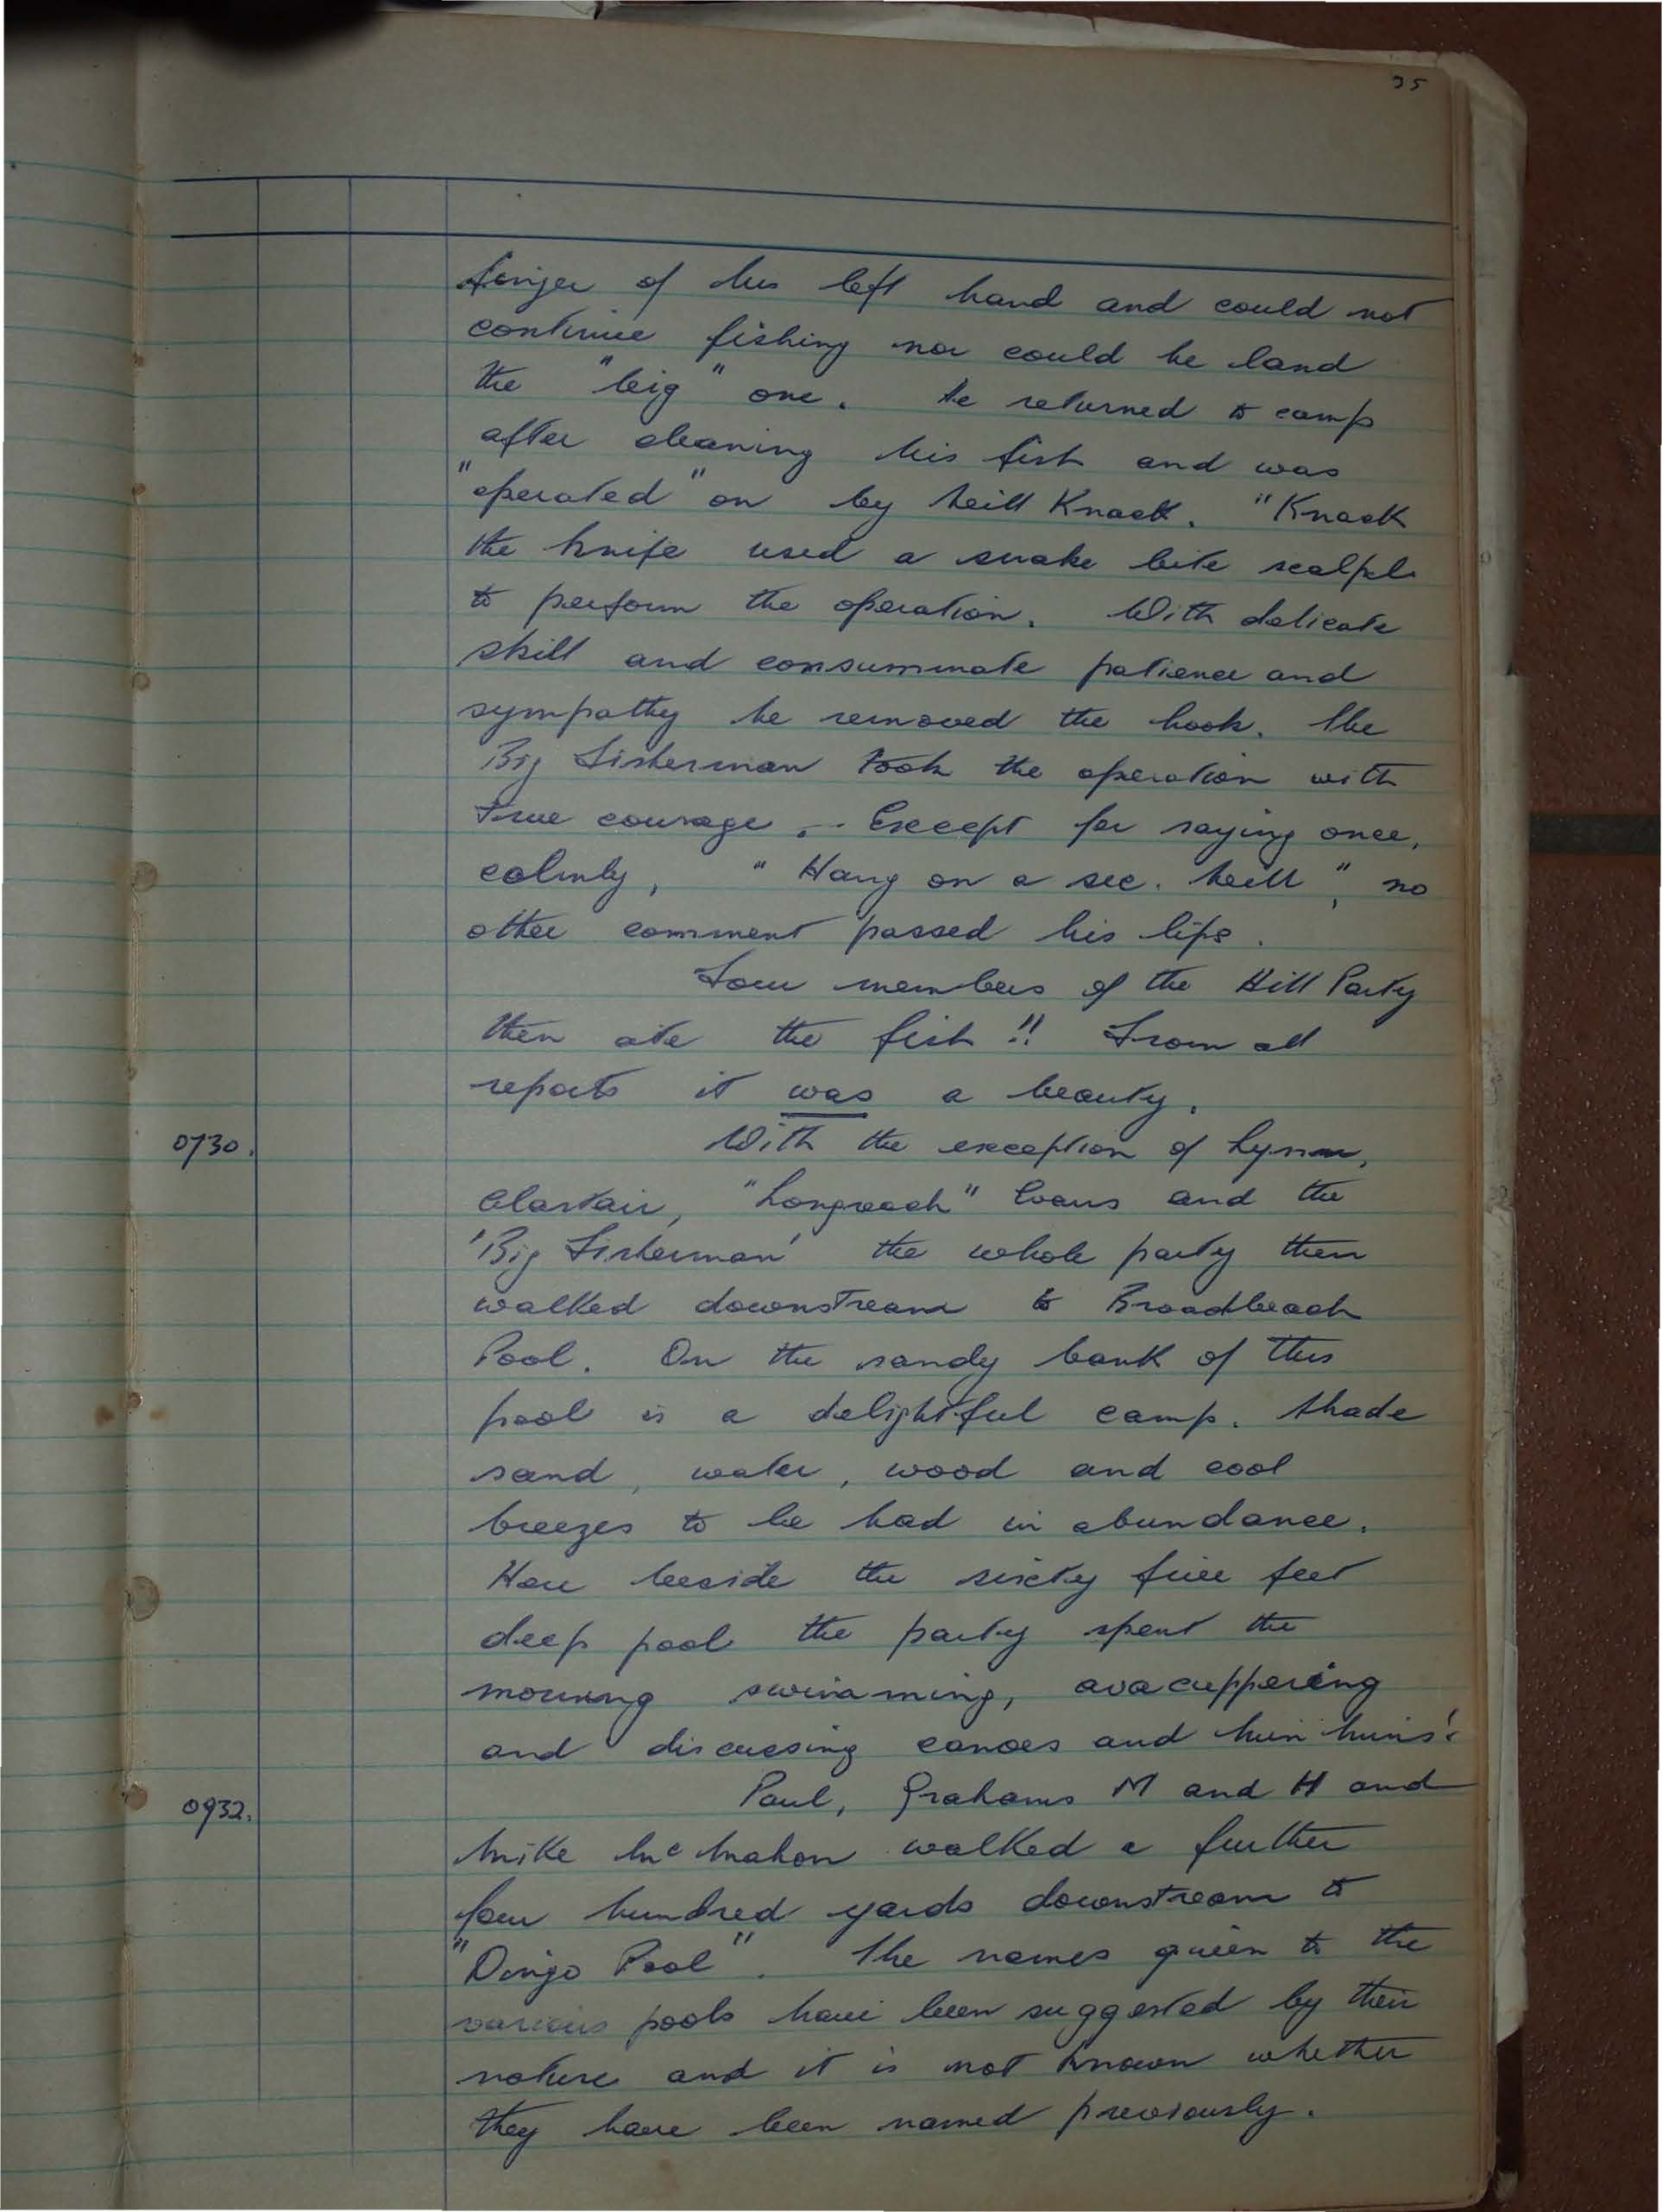 35
finger of his left hand and could not
continue fishing nor could he land
the "big" one. He returned to camp
after cleaning his fish and was
"operated" on by Neill Knack. "Knack
the knife used a snake bite scalpel
to perform the operation. With delicate
skill and consummate patience and
sympathy he removed the hook. The
Big Fisherman took the operation with
true courage. Except for saying once,
calmly, "Hang on a sec. Neill", no
other comment passed his lips.
Four members of the Hill Party
then ate the fish!! From all
reports it was a beauty.
0730. With the exception of Lynn,
Alastair, "Longreach" Evans and the
'Big Fisherman' the whole party then
walked downstream to Broadbeach
Pool. On the sandy bank of this
pool is a delightful camp. Shade
sand, water, wood and cool
breezes to be had in abundance.
Here beside the sixty five feet
deep pool the party spent the
morning swimming, avacuppering
and discussing canoes and
0932. Paul, Grahams M and H and
Mike McMahon walked a further
few hundred yards downstream to
"Dingo Pool". The names given to the
various pools have been suggested by their
nature and it is not known whether
they have been named previously.